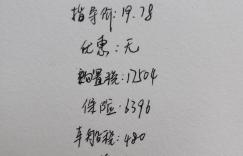 指导价:19.78
优惠:无
购置税:17504
保险:6396
车船税:480